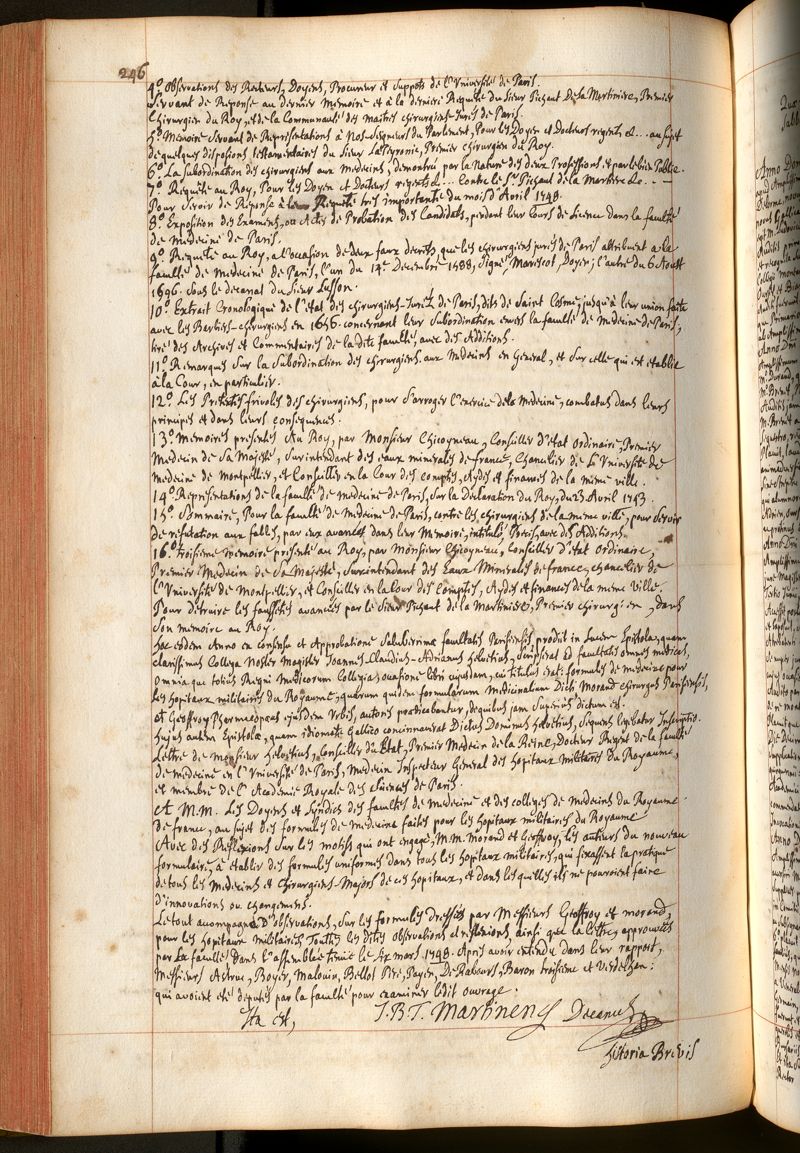 246
4.° Observations des Recteurs, Doyens, Procureur et Suppots de l'Université de Paris.
Servant de Reponse au dernier Memoire et à la derniere Requête du Sieur Pichaut De la Martiniere, Premier
Chirurgien du Roy, et de la Communauté des maitres chirurgiens-Jurés de Paris.
5.° Memoire Servant de Representations à Nos-Seigneurs du Parlement, Pour les Doyen et Docteurs regents &... au sujet
de quelques dispositions testamentaires du Sieur La Peyronie, Premier chirurgien du Roy.
6.° La Subordination des chirurgiens aux Medecins, demontrée par la Nature des deux Professions et par le bien Public.
7.° Requête au Roy, Pour les Doyen et Docteurs regents &... Contre le Sr. Pichaut de la Martiniere &c. - -
Pour Servir de Reponse à la Requête tres importante du mois d'Avril 1748.
8.° Exposition des Examens, ou Actes de Probation des Candidats, pendant leur Cours de Licence dans la faculté
de Medecine de Paris.
9.° Requête au Roy, a l'occasion de deux faux decrets que les chirurgiens jurés de Paris attribuent a la
faculté de Medecine de Paris, l'un du 14e. Decembre 1588, Signé Marescot, Doyen; l'autre du 6 Aoust
1696. Sous le decanat du Sieur Lusson.
10.° Extrait Cronologique de l'etat des chirurgiens-Jurés de Paris, dits de Saint Cosme, jusqu'à leur union faite
avec les Barbiers-chirurgiens en 1656. concernant leur Subordination envers la faculté de Medecine de Paris,
tiré des Archives et Commentaires de la dite faculté, avec des Additions.
11.° Remarques Sur la Subordination des chirurgiens aux Medecins en General, et Sur celle qui est etablie
à la Cour, en particulier.
12.° Les Pretextes frivoles des chirurgiens, pour S'arroger l'exercice de la Medecine, combatus dans leurs
principes et dans leurs consequences.
13.° Memoires presentés Au Roy, par Monsieur Chicoyneau, Conseiller d'etat Ordinaire, Premier
Medecin de Sa Majesté, Surintendant des eaux minerales de france, Chancelier de L'Université de
Medecine de Montpellier, et Conseiller en la Cour des Comptes, Aydes et finances de la même ville.
14.° Representations de la faculté de medecine de Paris, Sur la Déclaration du Roy, du 23 Avril 1743.
15.° Sommaire, Pour la faculté de Medecine de Paris, contre les chirurgiens de la meme ville, pour Servir
de refutation aux fables, par eux avancés dans leur Memoire, intitulé, Precis, avec des Additions.
16.° troisieme memoire presenté au Roy, par Monsieur Chicoyneau, Conseiller d'etat Ordinaire,
Premier Medecin de Sa Majesté, Surintendant des Eaux Minerales de france, chancelier de
l'Université de Montpellier, et Conseiller en la Cour des Comptes, Aydes et finances de la même ville.
Pour detruire les faussetés avancées par le Sieur Pichaut de la Martiniere, Premier chirurgien, dans
Son memoire au Roy.
Hoc eodem Anno ex consensu et Approbatione Saluberrimæ facultatis Parisiensis prodiit in lucem Epistola, quam
clarissimus Collega Noster Magister Joannes-Claudius-Adrianus Helvetius, Scripserat ad facultatis omnes medicas,
Omniaque totius Regni Medicorum Collegia, occasione libri cujusdam, cui titulus erat: formules de medecine pour
les hopitaux militaires du Royaume, quarum quidem formularum medicinalium Dicti Morand chirurgus Parisiensis,
et Geoffroy Pharmacopæus ejusdem Urbis, autores prædicabantur, de quibus jam Superius dictum est.
Hujus autem Epistolæ, quam idiomate Gallico concinnaverat Dictus Dominus Helvetius, Sequens legebatur Inscriptio.
Lettre de Monsieur Helvetius, Conseiller d'Etat, Premier Medecin de la Reine, Docteur Regent de la faculté
de medecine en l'Université de Paris, Medecin Inspecteur General des hopitaux militaires du Royaume,
et membre de l'Academie Royale des Sciences de Paris.
A M.M. Les Doyens et Syndics des facultés de medecine et des colleges de medecins du Royaume
de france, au sujet des formules de medecine faites pour les hopitaux militaires du Royaume
Avec des Reflexions Sur les motifs qui ont engagé, M.M. Morand et Geoffroy, les auteurs du nouveau
formulaire, à etablir des formules uniformes dans tous les hopitaux militaires, qui fixassent la pratique
de tous les Medecins et Chirurgiens-Majors de ces hopitaux, et dans lesquelles ils ne pouroient faire
d'innovations ou changemens.
Le tout accompagné D'observations, Sur les formules dressées par Messieurs Geoffroy et Morand,
pour les hopitaux militaires. Touttes les dites observations et reflexions, ainsi que la lettre, approuvées
par La faculté dans l'assemblée tenuë le mars 1748. Après avoir entendu dans leur rapport,
Messieurs Astruc, Boyer, Malouin, Bellot Pere, Payen, De Rabours, Baron troisieme et Verdelhan:
qui avoient été deputés par la faculté pour examiner ledit ouvrage.
Ita est, J. B. T. Martinenq Decanus
Historia Brevis